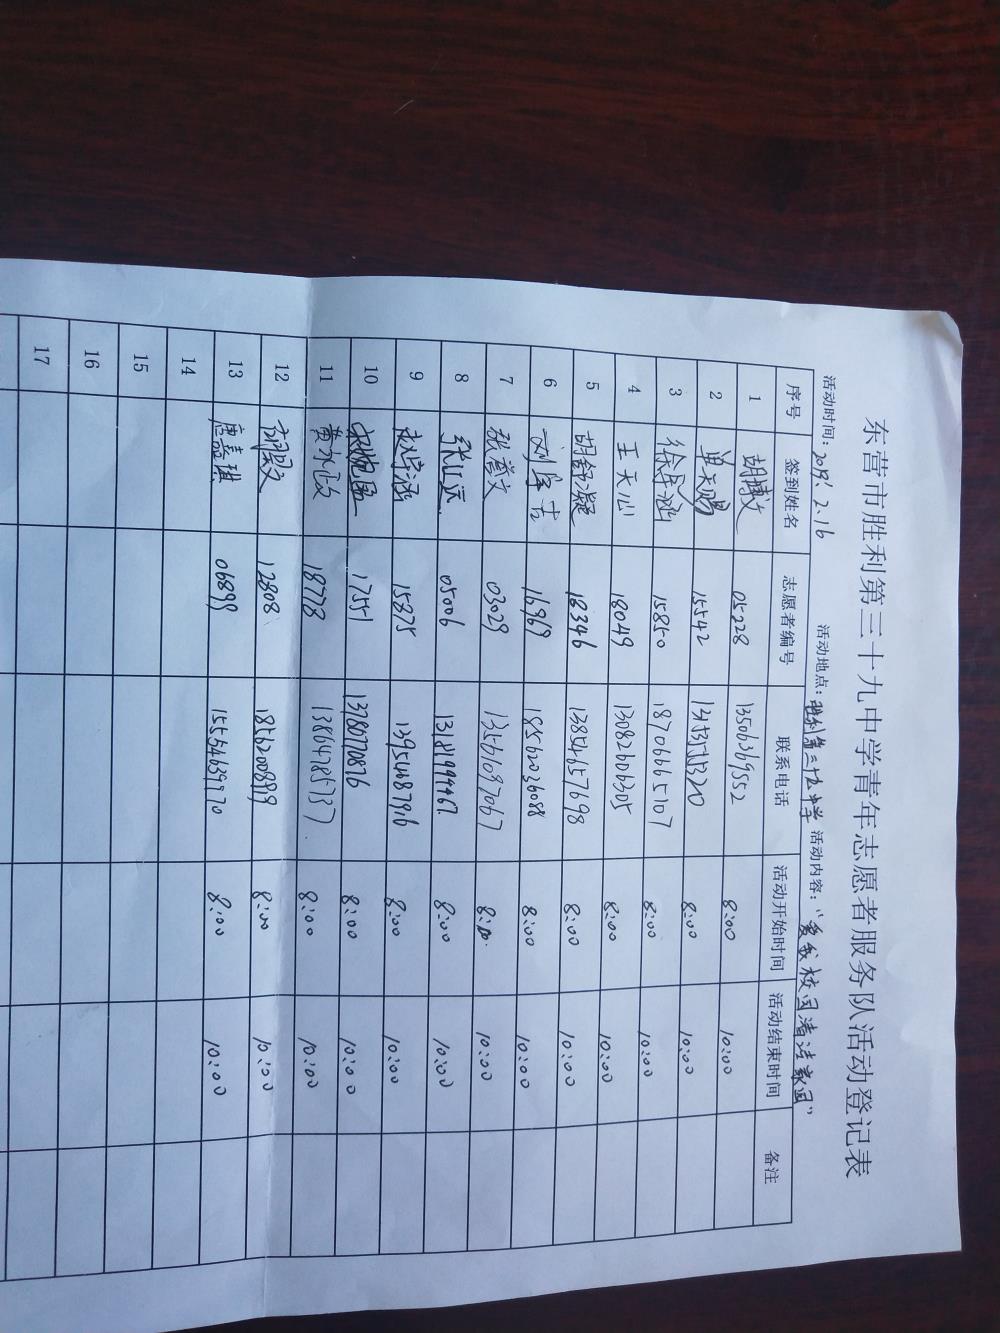 东营市胜利第三十九中学青年志愿者服务队活动登记表
活动时间：2019.2.16 活动地点：胜利第三十九中学 活动内容："爱我校园清洁家园"
序号 签到姓名 志愿者编号 联系电话 活动开始时间 活动结束时间 备注
1 胡博文 05228 13506369552 8:00 10:00
2 单天赐 15542 8:00 10:00
3 徐卓涵 15850 18706665107 8:00 10:00
4 王天心 18049 13082606305 8:00 10:00
5 胡金凝 18346 13854657698 8:00 10:00
6 16969 18562036088 8:00 10:00
7 03029 13561097067 8:00 10:00
8 张江远 05006 13181999467 8:00 10:00
9 赵梓涵 15875 13954687916 8:00 10:00
10 17551 13780770876 8:00 10:00
11 18778 13864785737 8:00 10:00
12 12808 18562008919 8:00 10:00
13 唐嘉琪 06899 15554639770 8:00 10:00
14
15
16
17